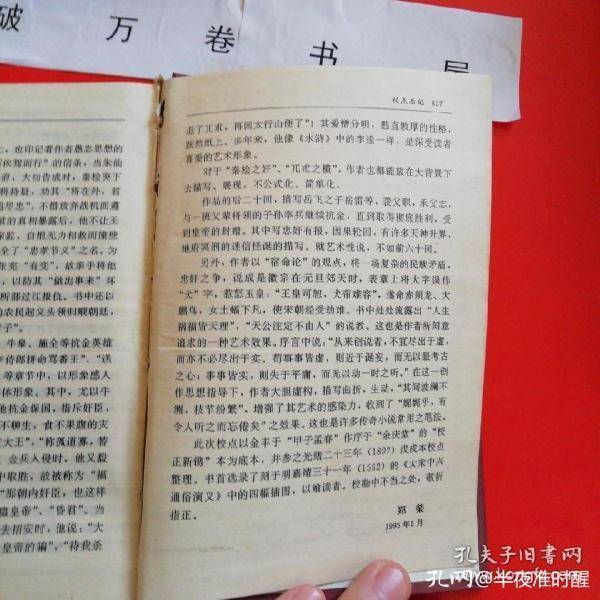 破万卷书屋
上，也印记着作者愚忠思想的
俟驾而行”的信条，当朱仙
府，大功告成时，秦桧矣下
将持疑，劝其“将在外，君
竭尽忠”，不惜放弃战机而遵
奸的真相暴露后，他不让王
亲监，自恨无力相救而撞壁
全了“忠孝节义”之名。为
张宪“有变”，故亲手将他
，以防其“做出事来”坏
所部过江报仇。书中还以
的农民起义头领归顺朝廷，
牛皋、施全等抗金英雄
李侍郎拼命骂番王”、“送
等章节中，以形象感人
体形象。其中，尤以牛
他抗金保国，指斥奸臣，
不聊生，食不果腹的灾
大王”，“称孤道寡，替
金兵入侵时，他又毅
中取胜，故被称为“福
“那朝内奸臣，也这样
鸟皇帝”、“昏君”。当
去招安时，他说：“大
皇帝的鞴”，“待我杀
校点后记 617
走了兀朮，再回太行山便了”！其爱憎分明，憨直敦厚的性格，
跃然纸上，多年来，他像《水浒》中的李逵一样，是深受读者
喜爱的艺术形象。
对于“秦桧之奸”、“兀朮之横”，作者也都能放在大背景下
去描写、展现，不公式化、简单化。
作品的后二十回，描写岳飞之子岳雷等，袭父职，承父志，
与一班父辈将领的子孙率兵继续抗金，直到取得彻底胜利，受
到皇帝的封赠。其中写忠奸有报，因果轮回，有许多天神升界、
地府冥刑的迷信怪诞的描写，就艺术性说，不如前六十回。
另外，作者以“宿命论”的观点，将一场复杂的民族矛盾，
忠奸之争，说成是徽宗在元旦郊天时，表章上将大字误作
“犬”字，惹怒玉皇：“王皇可恕，犬帝难容”，遂命赤须龙、大
鹏鸟、女土蝠下凡，使宋朝经受劫难。书中处处流露出“人生
祸福皆天理”，“天公注定不由人”的说教，这也是作者所刻意
追求的一种艺术效果。序言中说：“从来创说者，不宜尽出于虚，
而亦不必尽出于实。苟事事皆虚，则近于诞妄，而无以服考古
之心；事事皆实，则失于平庸，而无以动一时之听。”在这一创
作思想指导下，作者大胆虚构，描写曲折，生动，“其间波澜不
测，枝节纷繁”。增强了其艺术的感染力，收到了“娓娓乎，有
令人听之而忘倦矣”之效果，这也是许多传奇小说常用之笔法。
此次校点以金丰于“甲子孟春”作序于“余庆堂”的“校
正新镌”本为底本，并参之光绪二十三年（1897）戊戌本校点
整理。书首选录了刻于明嘉靖三十一年（1552）的《大宋中兴
通俗演义》中的四幅插图，以飨读者。校勘中不当之处，敬祈
指正。
郑荣
1995年1月
孔夫子旧书网
孔网@半夜准时醒